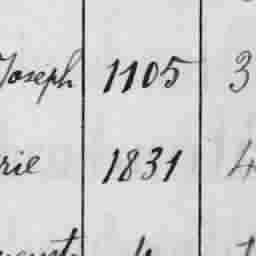 Joseph 1105 3
rie 1831 4